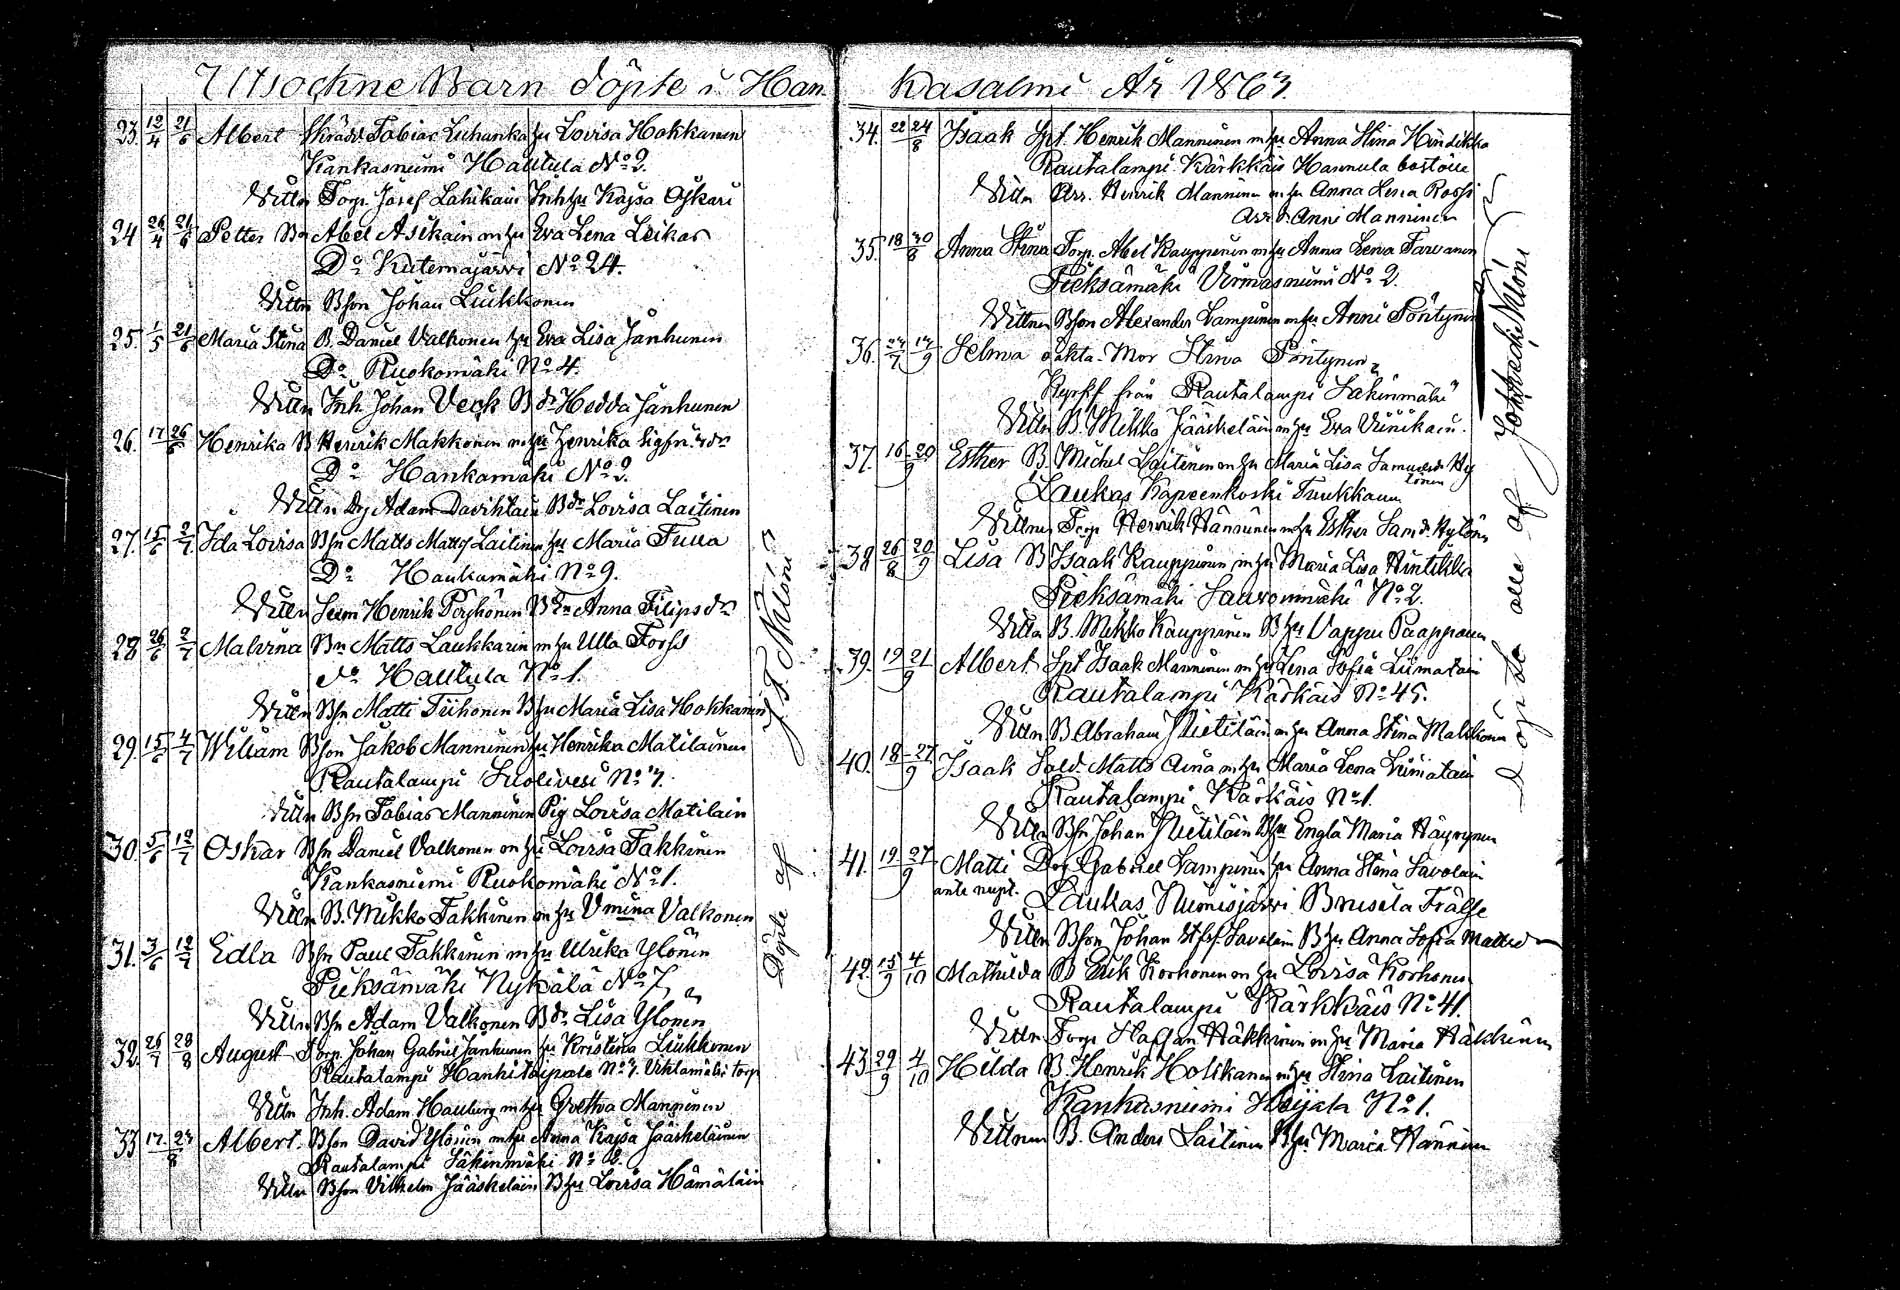 Utsockne Barn döpte i Han
23. 12/4 21/6 Albert Skrädd. Tobias Luhanka hu Lovisa Hokkanen
Kankasniemi Hautula No 2.
Vittn Torp. Josef Lahikain Inhhu Kajsa Oj kari
24 26/4 21/6 Petter Bn Abel Asikain m hu Eva Lena Leikas
Do Kutemajärvi No 24.
Vittn Bson Johan Liukkonen
25. 1/5 21/6 Maria Stina B. Daniel Valkonen hu Eva Lisa Janhunen
Do Ruokomäki No 4.
Vittn Inh. Johan Veck B dr Hedda Janhunen
26. 17 26/6 Henrika B Henrik Makkonen m hu Henrika Sigfrids dr
Do Hankamäki No 2.
Vittn Dg Adam Davihlain B dr Lovisa Laitinen
27. 15/6 2/7 Ida Lovisa Bsn Matts Mattss Laitinen hu Maria Tuua
Do Haukamäki No 9.
Vittn Henrik Pöyhönen Anna Filips dr
28 26/6 2/7 Malvina Bn Matts Laukkarin m hu Ulla Forss
do Hautula No 1.
Vittn Bsn Matti Tiihonen B hu Maria Lisa Hokkanen
29. 15/6 4/7 William Bson Jakob Manninen hu Henrika Matilainen
Rautalampi Suolivesi No 7.
Vittn Bsn Tobias Manninen Pig Lovisa Matilain
30. 5/6 12/7 Oskar Bsn Daniel Valkonen m hu Lovisa Takkinen
Kankasniemi Ruokomäki No 1.
Vittn B. Mikko Takkinen m hu Vmina Valkonen
31. 3/6 12/7 Edla Bsn Paul Takkinen m hu Ulrika Ylönen
Pieksämäki Nykälä No 7
Vittn Bsn Adam Valkonen B dr Lisa Ylönen
32. 26/7 28/8 August Torp. Johan Gabriel Janhunen hu Kristina Liukkonen
Rautalampi Hankitaipale No 7. Viklamäki torp
Vittn Inh. Adam Hauberg m hu Gretha Manninen
33 17 23/8 Albert. Bson David Ylönen m hu Anna Kajsa Jääskeläinen
Rautalampi Säkinmäki No 2.
Vittn Bson Vilhelm Jääskeläin B hu Lovisa Hämäläin
Döpte af J. F. Nilóni
kasalmi År 1863.
34. 22 24/8 Isaak Spt. Henrik Manninen m hu Anna Stina Hindikka
Rautalampi Kärkkäis Hannula boställe
Vittn Arr. Henrik Manninen m hu Anna Lena Rossi
Arr dr Anni Manninen
35. 18 30/8 Anna Stina Torp. Abel Kauppinen m hu Anna Lena Tarvanen
Pieksämäki Virmasniemi No 2.
Vittnen Bson Alexander Lampinen m hu Anni Pöntynen
36. 27/7 17/9 Selma oäkta. Mor Stina Pöntynen
Kyrkf från Rautalampi Säkinmäki
Vittn B. Mikko Jääskeläin m hu Eva Viinikain.
37. 16 20/9 Esther B. Michel Laitinen m hu Maria Lisa Samuelsdr Hy
tönen
Laukas Kapeenkoski Tuukkanen
Vittnen Torp Henrik Hänninen m hu Esther Sam dr Hytönen
38 26/8 20/9 Lisa B Isaak Kauppinen m hu Maria Lisa Hintikka
Pieksämäki No 2.
Vittn B. Mikko Kauppinen B hu Vappu Paappanen
39. 19 21/9 Albert Spt Isaak Manninen m hu Lena Sofia Liimatain
Rautalampi Kärkäis No 45.
Vittn B Abraham Nietiläin m hu Anna Stina Malikain
40. 18 27/9 Isaak Sold. Matts Aina m hu Maria Lena Liimatain
Rautalampi Kärkäis No 1.
Vittn Bsn Johan Nietiläin B hu Engla Maria Häyrynen
41. 19 27/9 Matti Dog Gabriel Lampinen hu Anna Stina Savolain
ante nupt.
Laukas Niemisjärvi Brusila Frälse
Vittn Bson Johan Savolain B hu Anna Sofia Mattsdr
42. 15/9 4/10 Mathilda B. Erik Korhonen m hu Lovisa Korhonen
Rautalampi Kärkkäis No 41.
Vittn Torp. Staffan Häkkinen m hu Maria Häkkinen
43 29/9 4/10 Hilda B. Henrik Holikanen m hu Stina Laitinen
Kankasniemi Heijala No 1.
Vittnen B. Anders Laitinen B hu Maria Hänninen
Döpte alle af Joh Fredr Nilóni